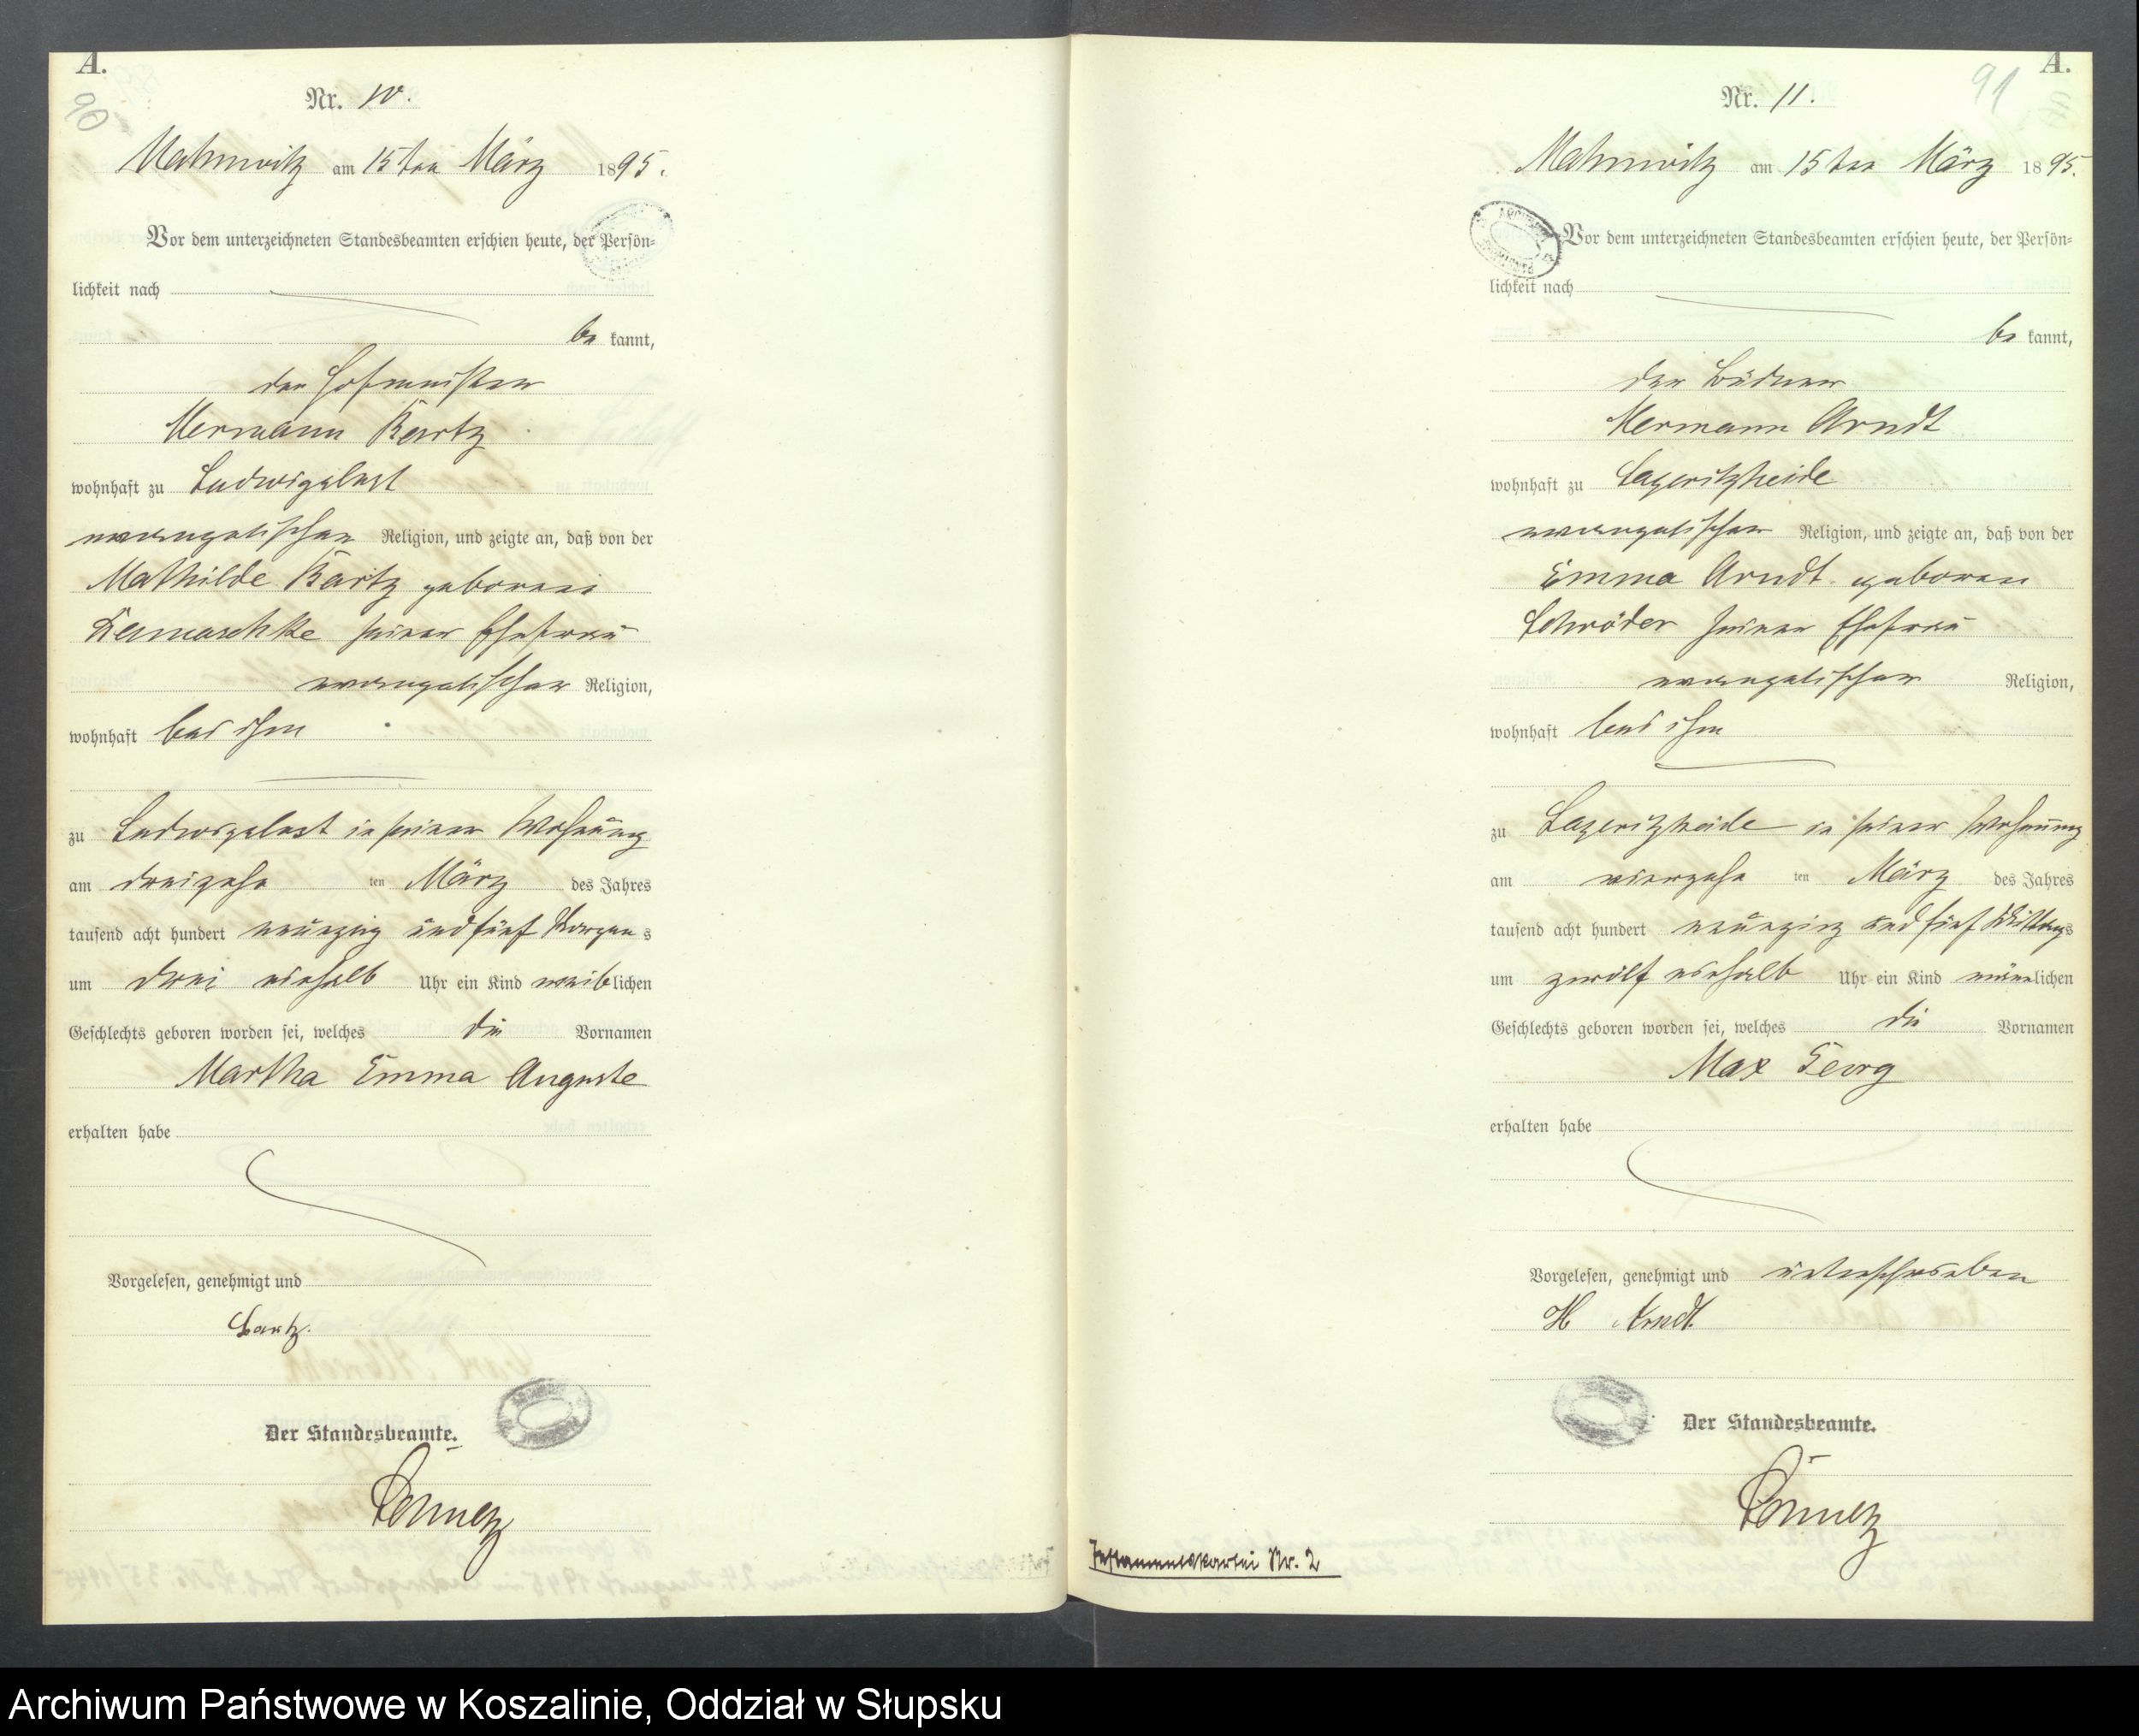 A.
90
Nr. 10.
Mahnwitz am 15ten März 1895.
Vor dem unterzeichneten Standesbeamten erschien heute, der Persön=
lichkeit nach
be kannt,
der Hofmeister
Hermann Bartz
wohnhaft zu Ludwigslust
evangelischer Religion, und zeigte an, daß von der
Mathilde Bartz geborene
seiner Ehefrau
evangelischer Religion,
wohnhaft bei ihm
zu Ludwigslust in seiner Wohnung
am dreizehn ten März des Jahres
tausend acht hundert neunzig und fünf Morgens
um drei einhalb Uhr ein Kind weiblichen
Geschlechts geboren worden sei, welches die Vornamen
Martha Emma Auguste
erhalten habe
Vorgelesen, genehmigt und
Bartz.
Der Standesbeamte.
A.
91
Nr. 11.
Mahnwitz am 15ten März 1895.
Vor dem unterzeichneten Standesbeamten erschien heute, der Persön=
lichkeit nach
be kannt,
der Büdner
Hermann Arndt
wohnhaft zu Lazeritzheide
evangelischer Religion, und zeigte an, daß von der
Emma Arndt geboren
Schröder seiner Ehefrau
evangelischer Religion,
wohnhaft bei ihm
zu Lazeritzheide in seiner Wohnung
am vierzehn ten März des Jahres
tausend acht hundert neunzig und fünf Mittags
um zwölf einhalb Uhr ein Kind männlichen
Geschlechts geboren worden sei, welches die Vornamen
Max Georg
erhalten habe
Vorgelesen, genehmigt und unterschrieben
H Arndt
Der Standesbeamte.
Testamentskartei Nr. 2
Archiwum Państwowe w Koszalinie, Oddział w Słupsku